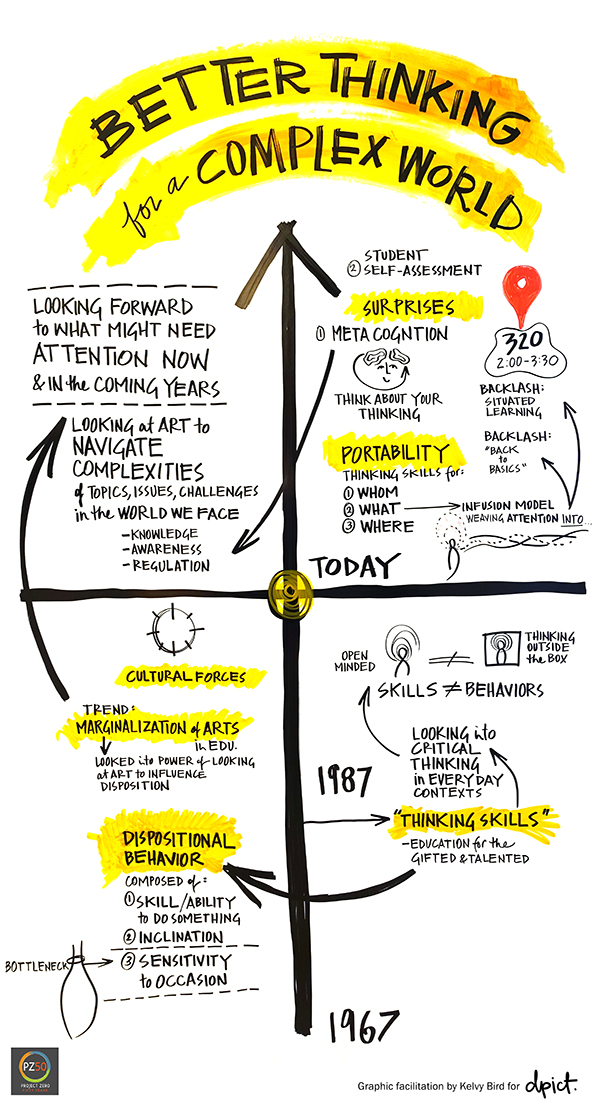 BETTER THINKING
for a COMPLEX WORLD
LOOKING FORWARD
to WHAT MIGHT NEED
ATTENTION NOW
& IN the COMING YEARS
LOOKING at ART to
NAVIGATE
COMPLEXITIES
of TOPICS, ISSUES, CHALLENGES
in the WORLD WE FACE
-KNOWLEDGE
-AWARENESS
-REGULATION
STUDENT
② SELF-ASSESSMENT
SURPRISES
① META COGNTION
THINK ABOUT YOUR
THINKING
320
2:00-3:30
BACKLASH:
SITUATED
LEARNING
BACKLASH:
"BACK
to
BASICS"
PORTABILITY
THINKING SKILLS for:
① WHOM
② WHAT
③ WHERE
INFUSION MODEL
WEAVING ATTENTION INTO...
TODAY
CULTURAL FORCES
TREND:
MARGINALIZATION of ARTS
in EDU.
LOOKED into POWER of LOOKING
at ART to INFLUENCE
DISPOSITION
OPEN
MINDED
THINKING
OUTSIDE
the BOX
SKILLS ≠ BEHAVIORS
LOOKING into
CRITICAL
THINKING
in EVERYDAY
CONTEXTS
1987
"THINKING SKILLS"
-EDUCATION for the
GIFTED & TALENTED
DISPOSITIONAL
BEHAVIOR
COMPOSED of:
① SKILL/ABILITY
to DO SOMETHING
② INCLINATION
③ SENSITIVITY
to OCCASION
BOTTLENECK
1967
PZ50
PROJECT ZERO
Graphic facilitation by Kelvy Bird for dpict.